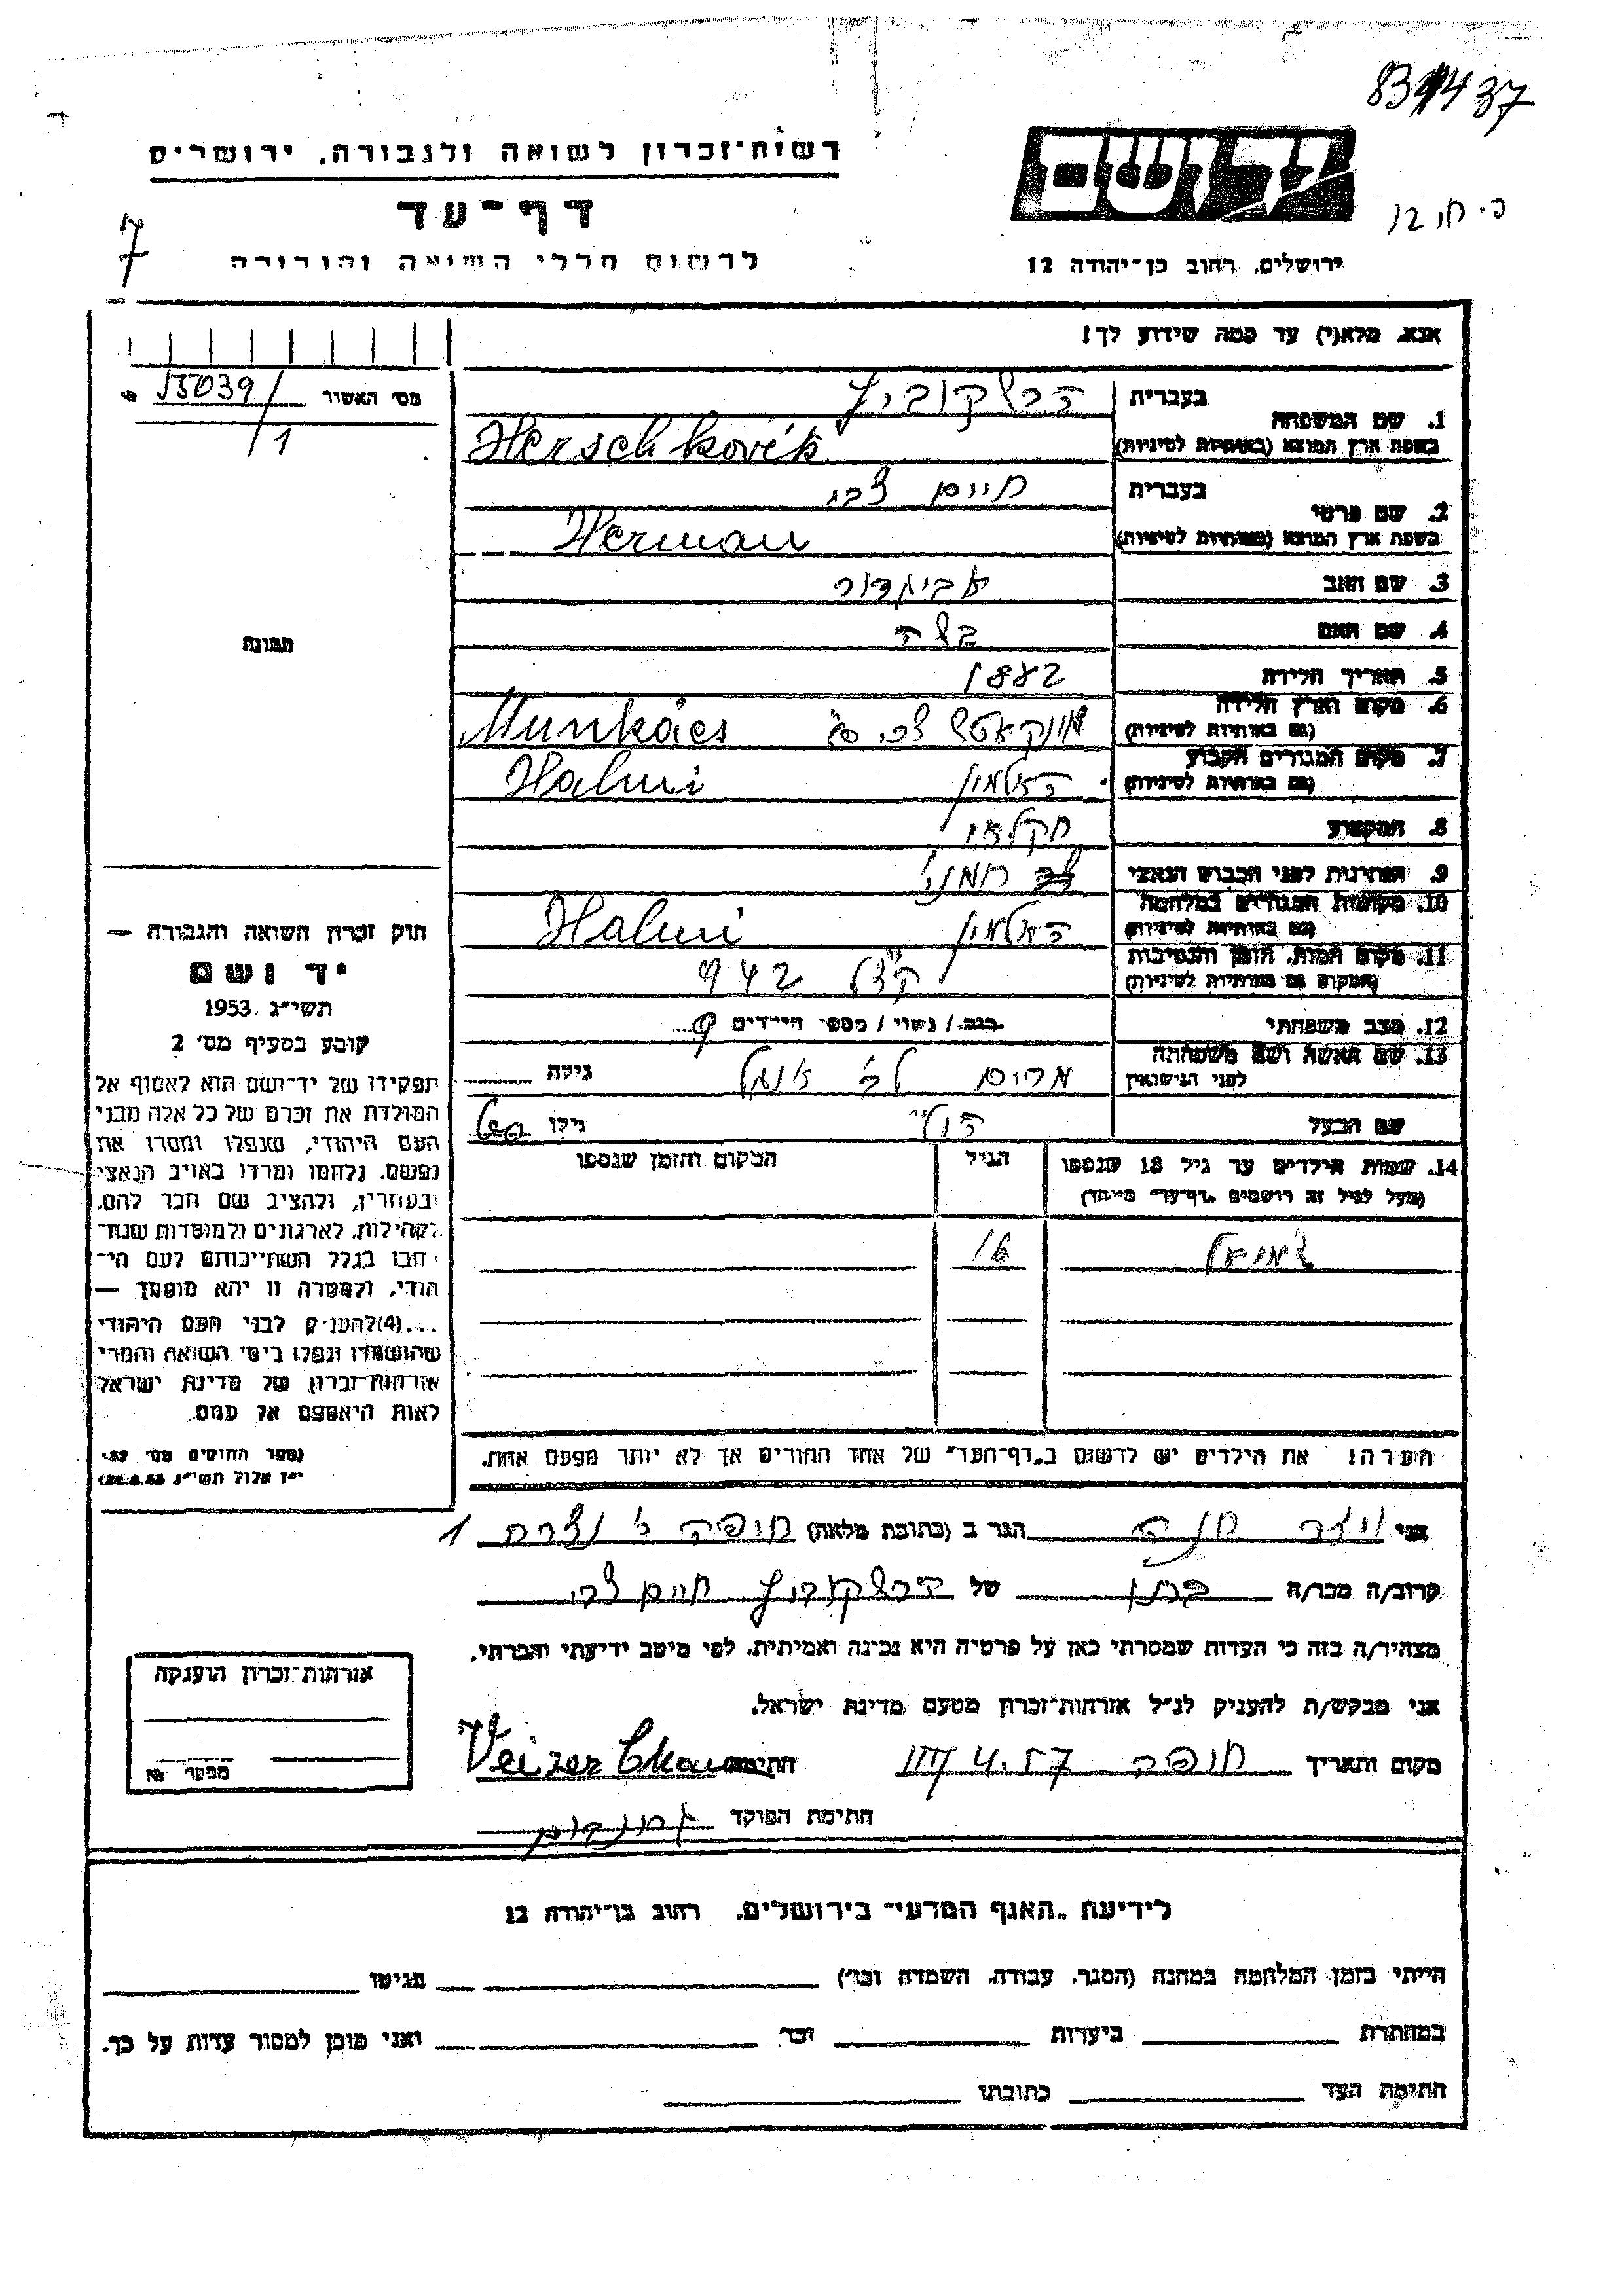 831437
רשות־זכרון לשואה ולגבורה, ירושלים
יד ושם
דף־עד
7
לרשום חללי השואה והגבורה
ירושלים, רחוב בן־יהודה 12
אנא, מלא(י) עד כמה שידוע לך!
מס׳ האשור 15039/
/1
1. שם המשפחה
בעברית הרשקוביץ
בשפת ארץ המוצא (באותיות לטיניות) Herschkovik
2. שם פרטי
בעברית חיים צבי
בשפת ארץ המוצא (באותיות לטיניות) Herman
3. שם האב אביגדור
4. שם האם
תמונה
5. תאריך הלידה 1882
6. מקום וארץ הלידה
(גם באותיות לטיניות) Munkács
7. מקום המגורים הקבוע
(גם באותיות לטיניות) האלמין Halmi
8. המקצוע חקלאי
9. הנתינות לפני הכבוש הנאצי
10. מקומות המגורים במלחמה
(גם באותיות לטיניות) האלמין Halmi
11. מקום המות, הזמן והנסיבות
(המקום גם באותיות לטיניות) 942
12. מצב משפחתי רווק / נשוי / מספר הילדים 9
13. שם האשה ושם משפחתה
לפני הנישואין מרים לב׳ גילה
שם הבעל הנ״ל גילו 60
14. שמות הילדים עד גיל 18 שנספו
(מעל לגיל זה רושמים „דף־עד״ מיוחד)
הגיל
המקום והזמן שנספו
שמואל 16
הערה! את הילדים יש לרשום ב„דף־העד״ של אחד ההורים אך לא יותר מפעם אחת.
חוק זכרון השואה והגבורה —
יד ושם
תשי״ג 1953
קובע בסעיף מס׳ 2
תפקידו של יד־ושם הוא לאסוף אל
המולדת את זכרם של כל אלה מבני
העם היהודי, שנפלו ומסרו את
נפשם, נלחמו ומרדו באויב הנאצי
ובעוזריו, ולהציב שם וזכר להם,
לקהילות, לארגונים ולמוסדות שנח־
רבו בגלל השתייכותם לעם הי־
הודי, ולמטרה זו יהא מוסמך —
...(4) להעניק לבני העם היהודי
שהושמדו ונפלו בימי השואה והמרי
אזרחות־זכרון של מדינת ישראל
לאות היאספם אל עמם.
(ספר החוקים מס׳ 132
י״ז אלול תשי״ג 28.8.53)
אני ויזר חנה הגר ב (כתובת מלאה) חיפה 1
קרוב/ה מכר/ה בתו של הרשקוביץ חיים צבי
מצהיר/ה בזה כי העדות שמסרתי כאן על פרטיה היא נכונה ואמיתית, לפי מיטב ידיעתי והכרתי.
אני מבקש/ת להעניק לנ״ל אזרחות־זכרון מטעם מדינת ישראל.
מקום ותאריך חיפה 4.57 חתימה Veizer
חתימת הפוקד
אזרחות־זכרון הוענקה
מספר №
לידיעת „האגף המדעי״ בירושלים, רחוב בן־יהודה 12
הייתי בזמן המלחמה במחנה (הסגר, עבודה, השמדה וכו׳) בגיטו
במחתרת ביערות וכו׳ ואני מוכן למסור עדות על כך.
חתימת העד כתובתו